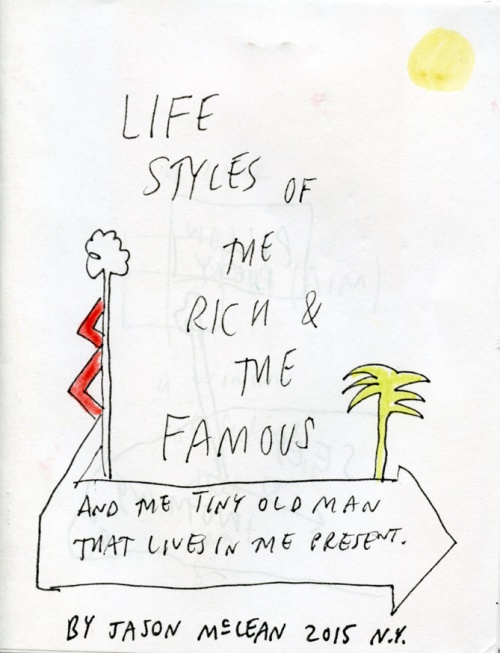 LIFE
STYLES OF
THE
RICH &
THE
FAMOUS
AND THE TINY OLD MAN
THAT LIVES IN THE PRESENT.
BY JASON McLEAN 2015 N.Y.